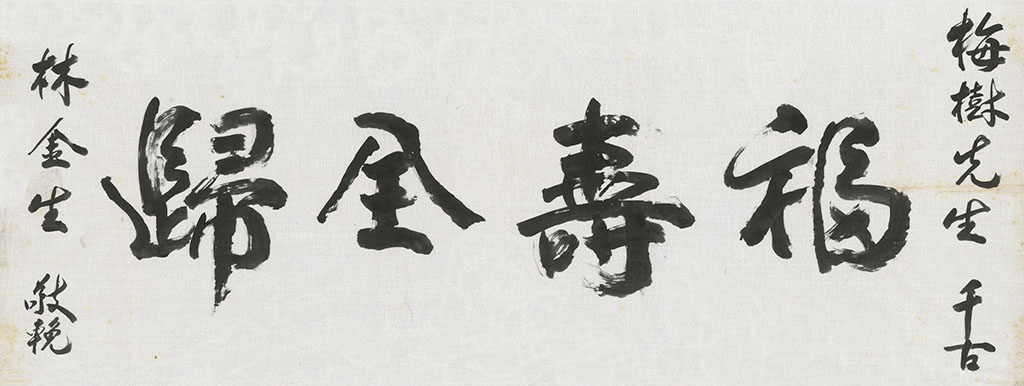 梅樹先生 千古
福壽全歸
林金生 敬輓